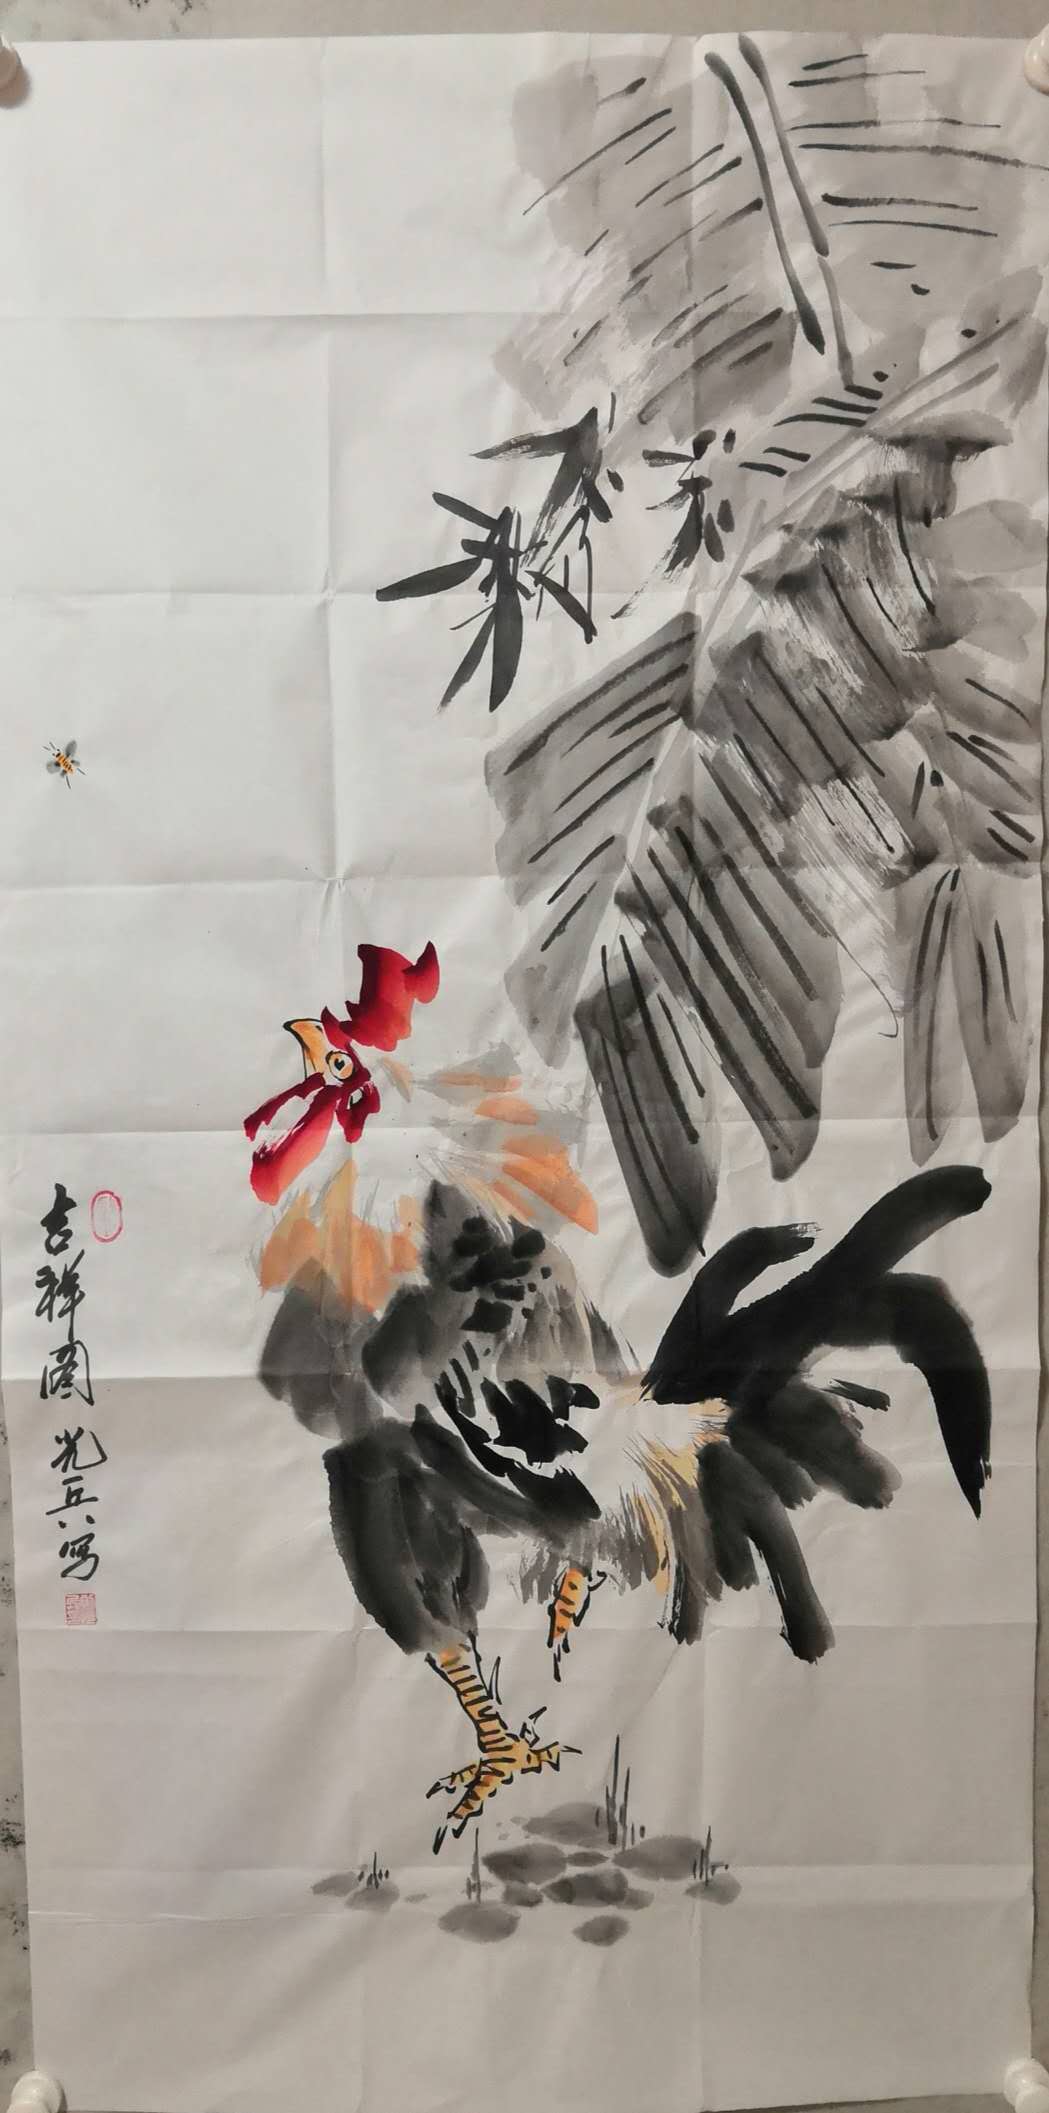 吉祥图光兵写